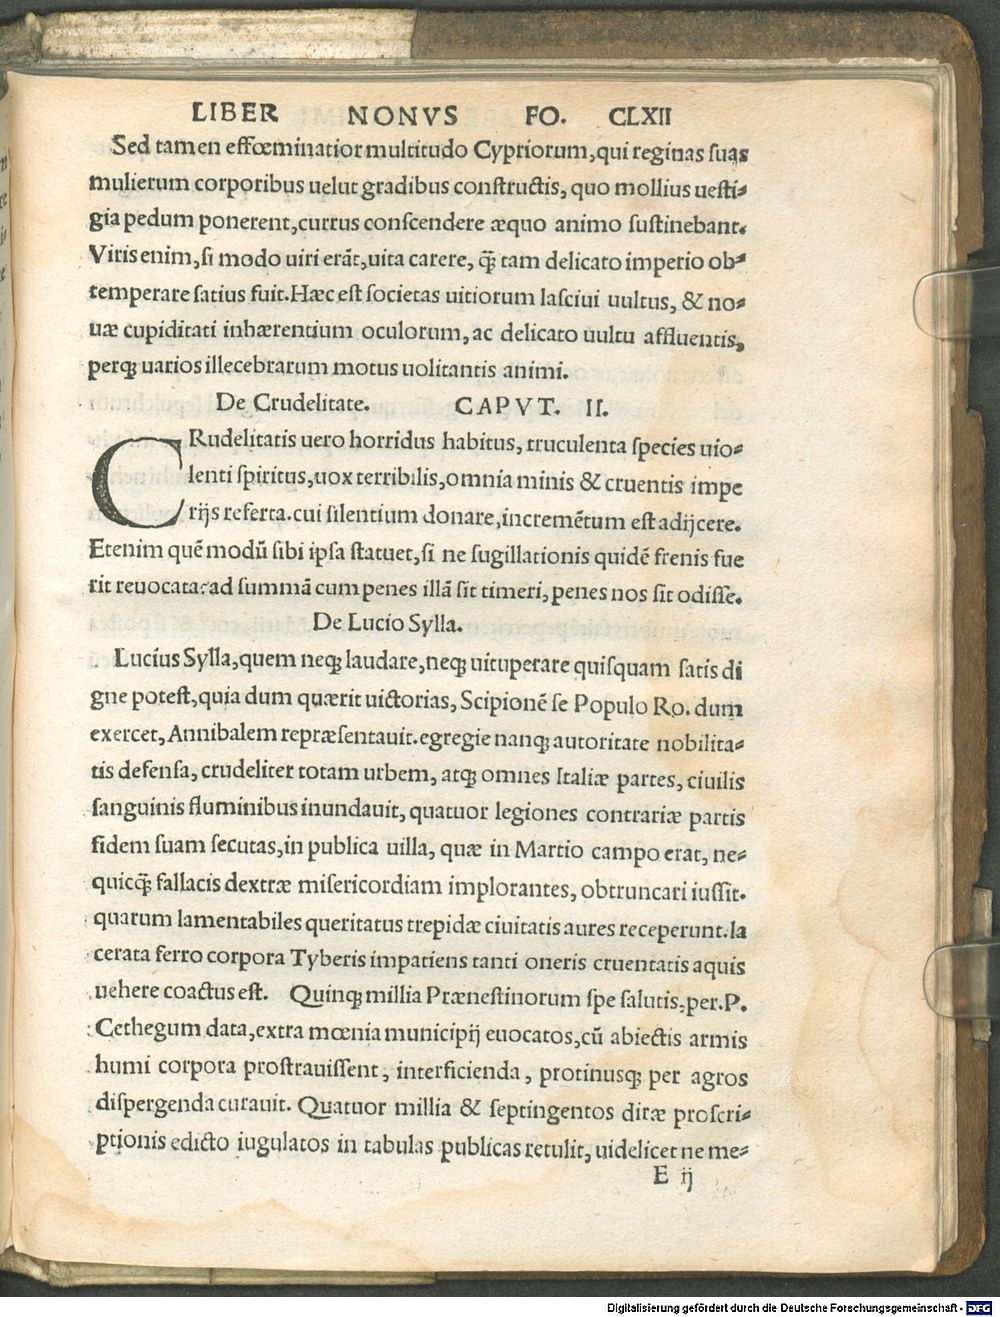 LIBER NONVS FO. CLXII
Sed tamen effœminatior multitudo Cypriorum, qui reginas suas
mulierum corporibus uelut gradibus constructis, quo mollius uesti⸗
gia pedum ponerent, currus conscendere æquo animo sustinebant.
Viris enim, si modo uiri erāt, uita carere, q̃ꝫ tam delicato imperio ob⸗
temperare satius fuit. Hæc est societas uitiorum lasciui uultus, & no⸗
uæ cupiditati inhærentium oculorum, ac delicato uultu affluentis,
perqꝫ uarios illecebrarum motus uolitantis animi.
De Crudelitate. CAPVT. II.
CRudelitatis uero horridus habitus, truculenta species uio⸗
lenti spiritus, uox terribilis, omnia minis & cruentis impe
rijs referta. cui silentium donare, incremētum est adijcere.
Etenim quē modū sibi ipsa statuet, si ne sugillationis quidē frenis fue
rit reuocata: ad summā cum penes illā sit timeri, penes nos sit odisse.
De Lucio Sylla.
Lucius Sylla, quem neqꝫ laudare, neqꝫ uituperare quisquam satis di
gne potest, quia dum quærit uictorias, Scipionē se Populo Ro. dum
exercet, Annibalem repræsentauit. egregie nanqꝫ autoritate nobilita⸗
tis defensa, crudeliter totam urbem, atqꝫ omnes Italiæ partes, ciuilis
sanguinis fluminibus inundauit, quatuor legiones contrariæ partis
fidem suam secutas, in publica uilla, quæ in Martio campo erat, ne⸗
quicq̃ꝫ fallacis dextræ misericordiam implorantes, obtruncari iussit.
quarum lamentabiles queritatus trepidæ ciuitatis aures receperunt. la
cerata ferro corpora Tyberis impatiens tanti oneris cruentatis aquis
uehere coactus est. Quinqꝫ millia Prænestinorum spe salutis, per. P.
Cethegum data, extra mœnia municipij euocatos, cū abiectis armis
humi corpora prostrauissent, interficienda, protinusqꝫ per agros
dispergenda curauit. Quatuor millia & septingentos diræ proscri⸗
ptionis edicto iugulatos in tabulas publicas retulit, uidelicet ne me⸗
E ij
Digitalisierung gefördert durch die Deutsche Forschungsgemeinschaft - DFG